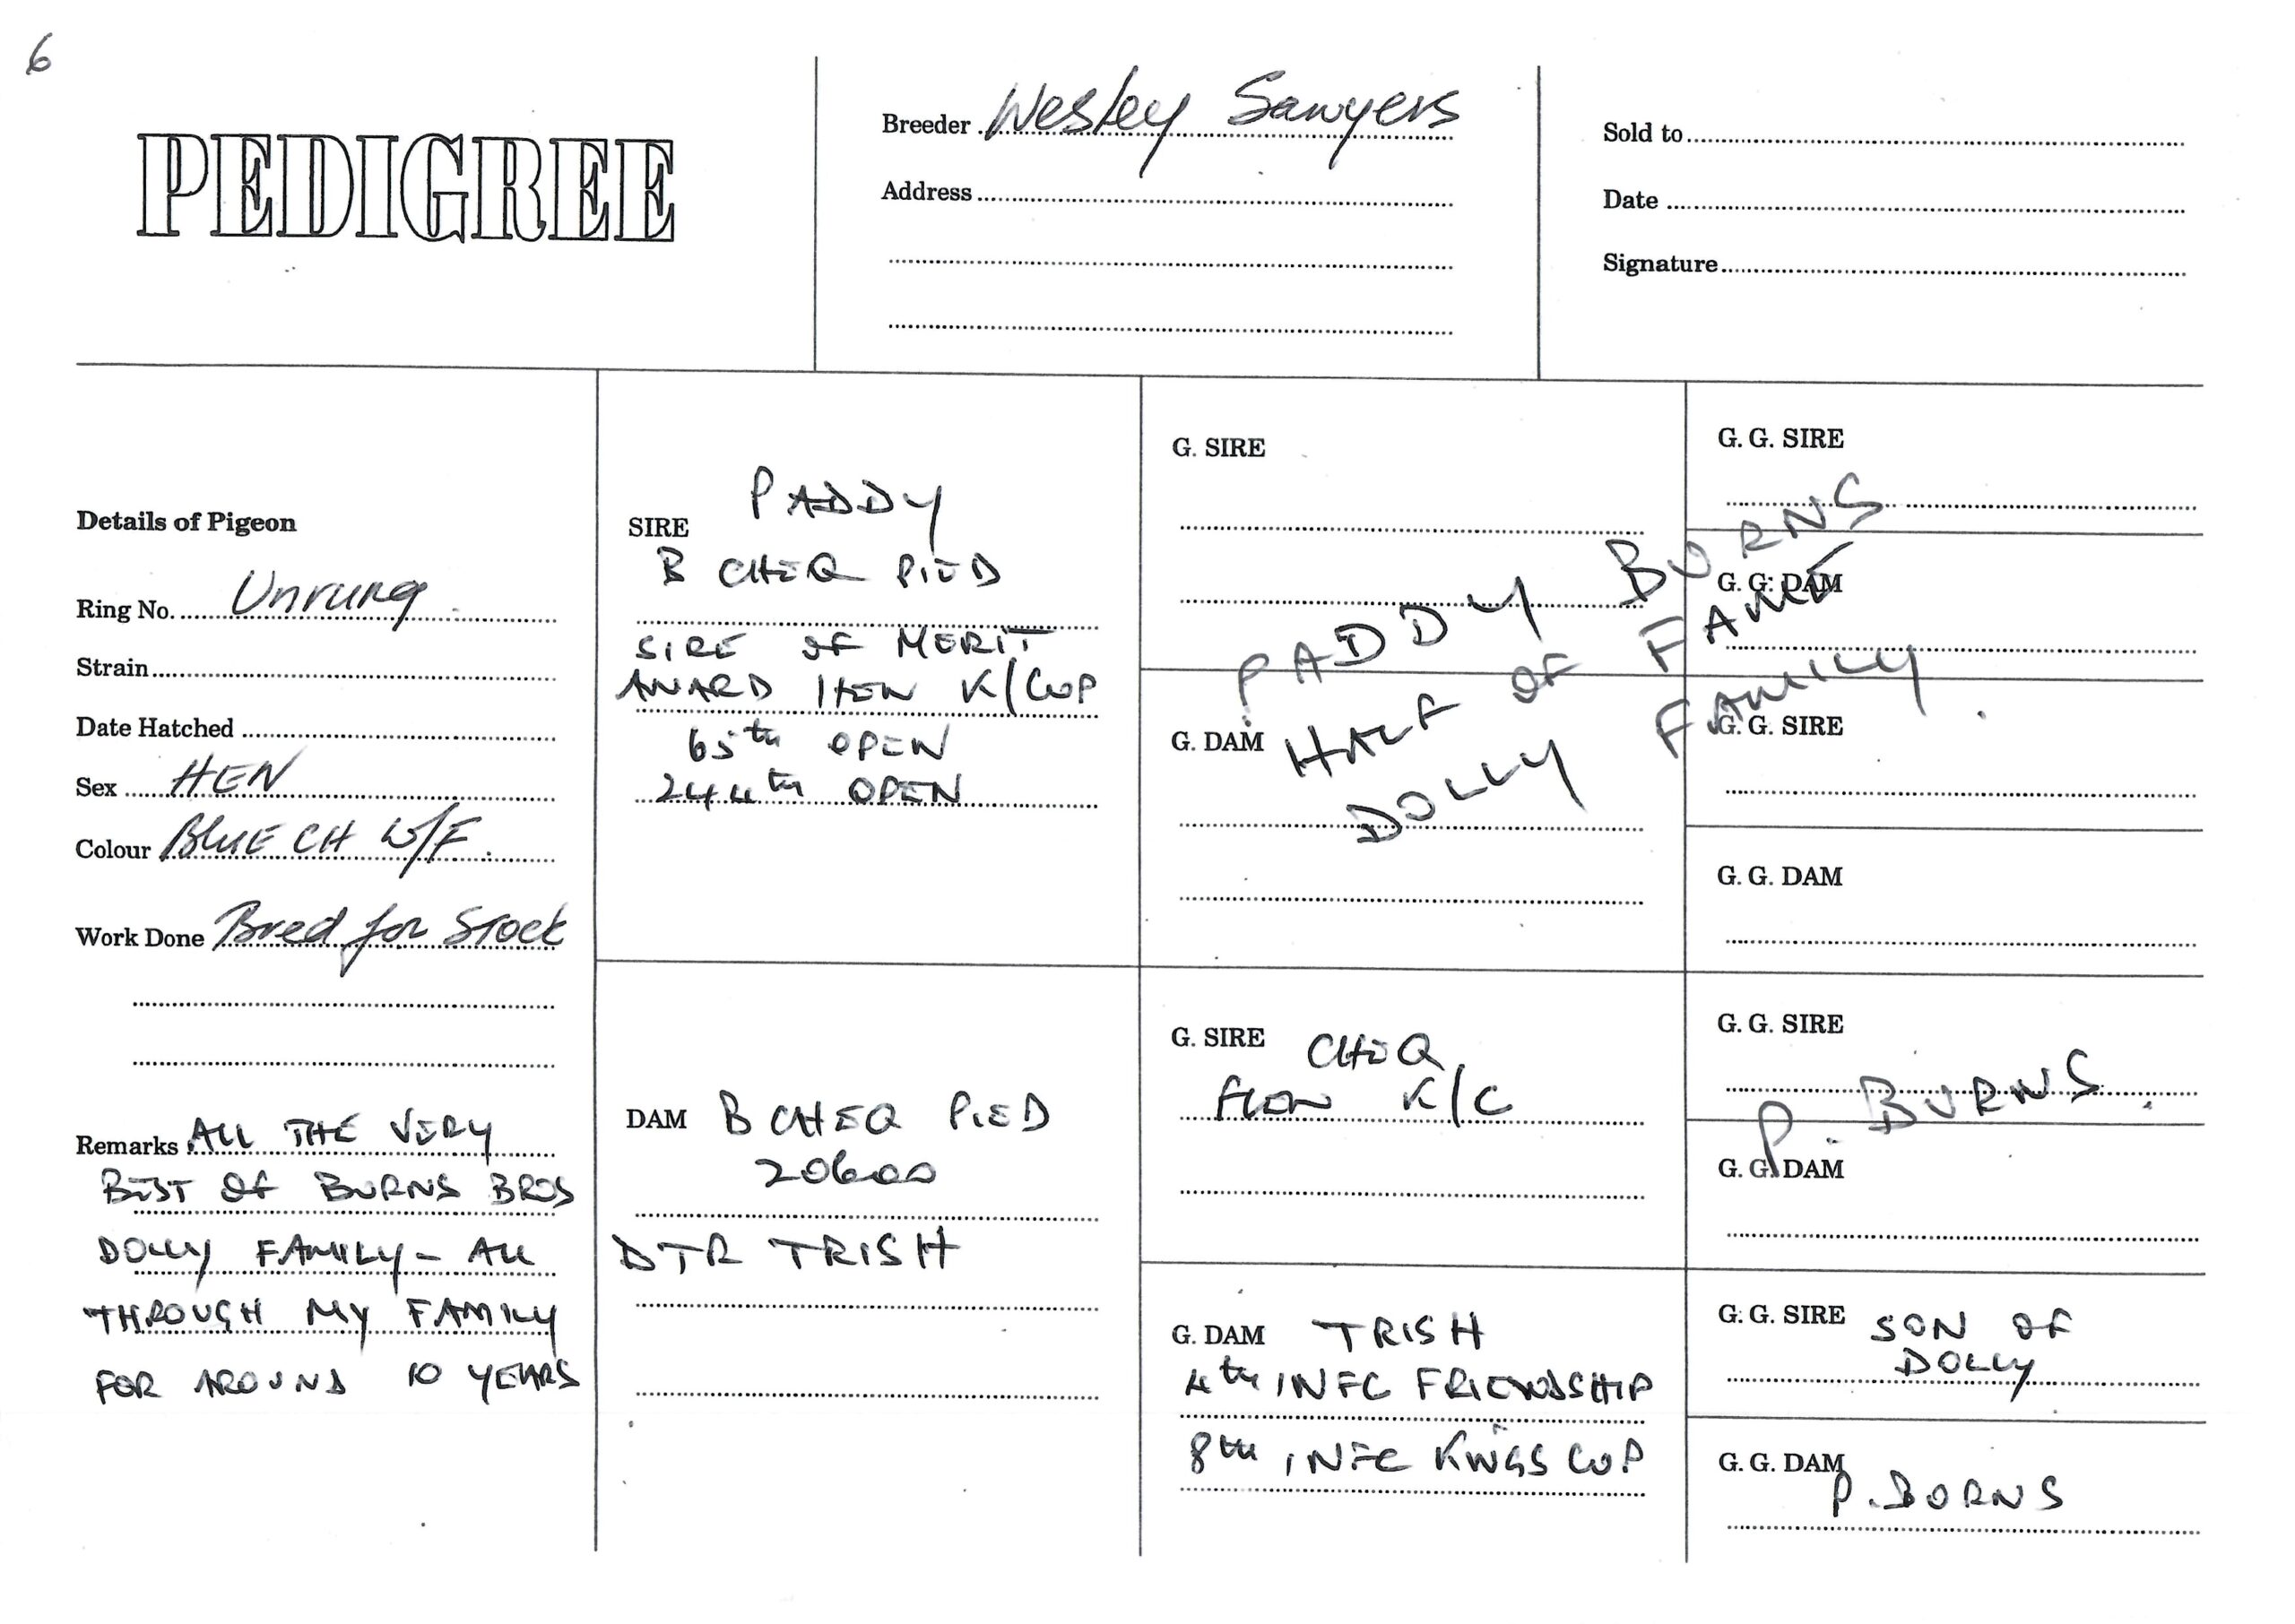 6
PEDIGREE
Breeder Wesley Sawyers
Address
Sold to
Date
Signature
Details of Pigeon
Ring No. Unrung
Strain
Date Hatched
Sex HEN
Colour BLUE CH W/F
Work Done Bred for Stock
Remarks ALL THE VERY
BEST OF BURNS BROS
DOLLY FAMILY - ALL
THROUGH MY FAMILY
FOR AROUND 10 YEARS
SIRE PADDY
B CHEQ PIED
SIRE OF MERIT
AWARD HEN K/CUP
65th OPEN
244th OPEN
DAM B CHEQ PIED
20600
DTR TRISH
G. SIRE
G. DAM
PADDY BURNS
HALF OF FAME
DOLLY FAMILY.
G. SIRE CHEQ
FLOWN K/C
G. DAM TRISH
4th INFC FRIENDSHIP
8th INFC KINGS CUP
G. G. SIRE
G. G. DAM
G. G. SIRE
G. G. DAM
G. G. SIRE
P. BURNS.
G. G. DAM
G. G. SIRE SON OF
DOLLY
G. G. DAM
P. BURNS